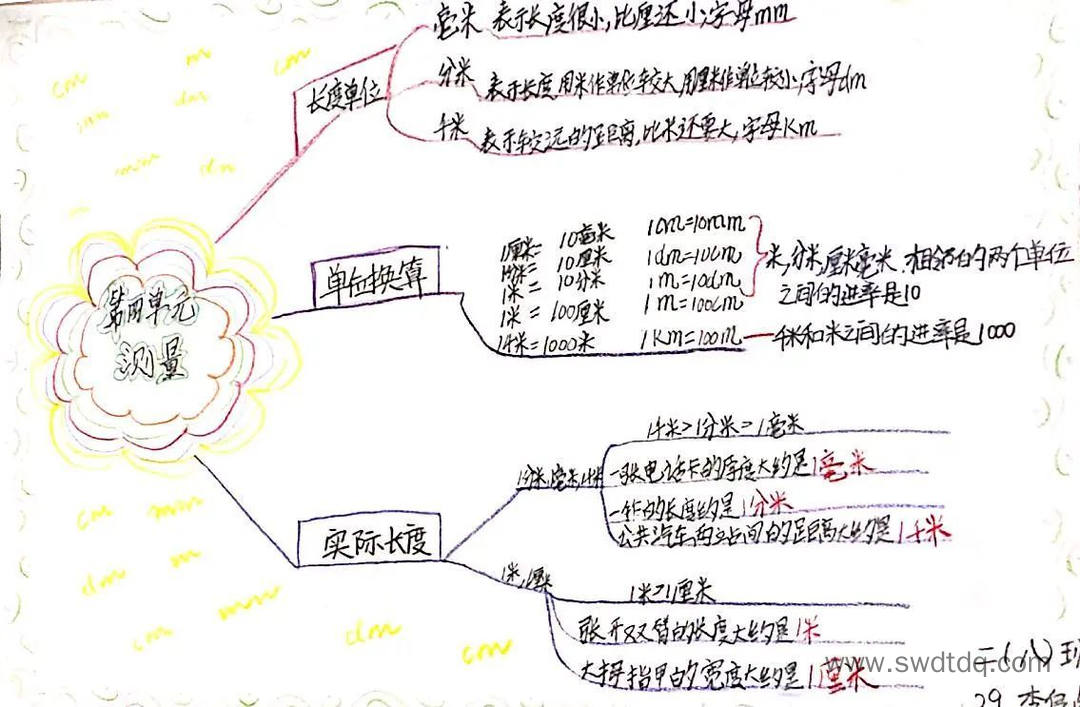 毫米 表示长度很小,比厘还小,字母mm
分米 表示长度,用米作单位较大,用厘米作单位较小,字母dm
千米 表示较远的距离,比米还要大,字母Km
长度单位
cm m cm
mm dm
mm dm
第四单元
测量
单位换算
1厘米= 10毫米 1cm=10mm
1分米= 10厘米 1dm=10cm
1米= 10分米 1m=10dm
1米= 100厘米 1m=100cm
1千米=1000米 1Km=100m
米,分米,厘米毫米,相邻的两个单位
之间的进率是10
千米和米之间的进率是1000
实际长度
1分米,1毫米,1千米
1千米>1分米>1毫米
一张电话卡的厚度大约是1毫米
的长度约是1分米
公共汽车两站间的距离大约是1千米
1米,1厘米
1米>1厘米
张开双臂的长度大约是1米
大拇指甲的宽度大约是1厘米
cm mm
dm mm
mm
cm dm
cm
www.swdtdq.com
二(八)班
29 李